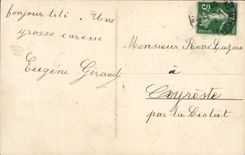 bonjour titi. Une
grosse caresse
Eugène Geraud
Monsieur René
à
Ceyreste
par la Ciotat
5